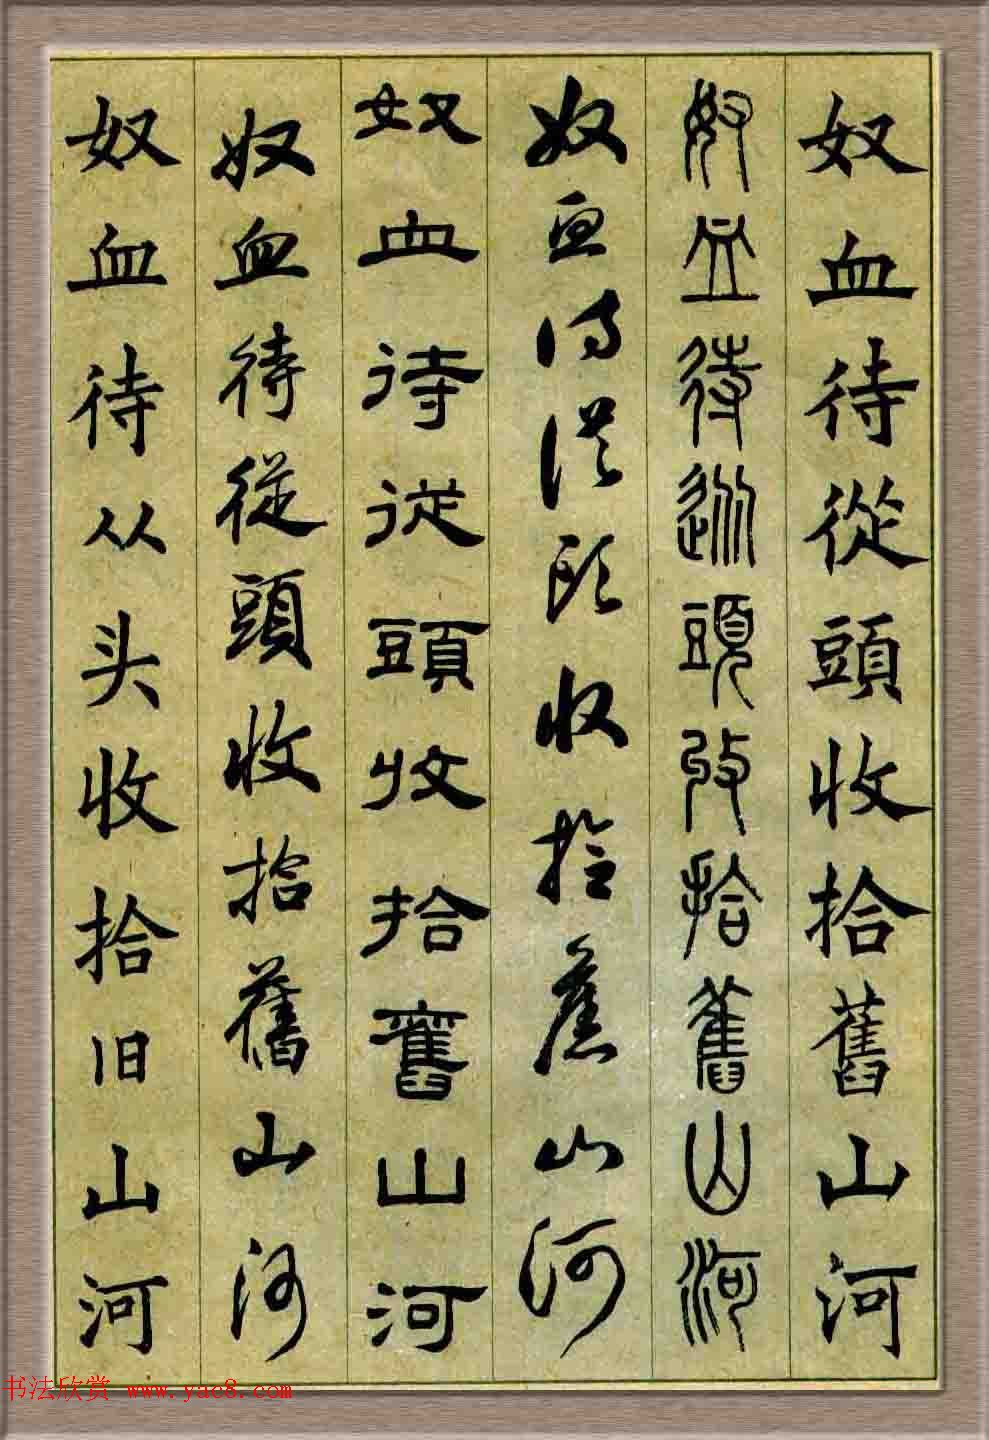 奴血待從頭收拾舊山河
奴血待從頭收拾舊山河
奴血待從頭收拾舊山河
奴血待従頭收拾舊山河
奴血待従頭收拾舊山河
奴血待从头收拾旧山河
书法欣赏 www.yac8.com